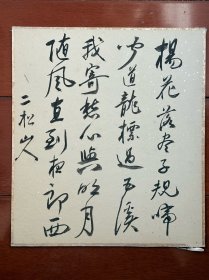 楊花落尽子規啼
聞道龍標過五溪
我寄愁心與明月
随風直到夜郎西
二松山人